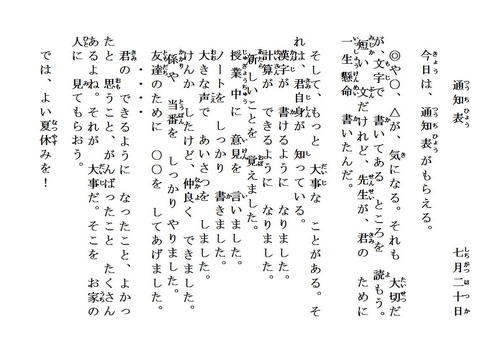 通知表　七月二十日
今日は、通知表がもらえる。
◎や○、△が、気になる。それも　大切だ
が、文字で　書いてある　ところを　読もう。
短い　文だけれど、先生が、君の　ために
一生懸命　書いたんだ。
そして、もっと　大事な　ことがある。そ
れは、君自身が　知っている。
漢字が　書けるように　なりました。
計算が　できるように　なりました。
新しいことを　覚えました。
授業中に　意見を　言いました。
ノートを　しっかり　書きました。
大きな声で　あいさつを　しました。
けんか　したけど、仲良く　できました。
係や　当番を　しっかり　やりました。
友達のために　○○を　してあげました。
・・・・
君の　できるように　なったこと、よかっ
たと　思うこと、がんばったこと　たくさん
あるよね。それが　大事だ。そこを　お家の
人に　見てもらおう。
では、よい夏休みを！